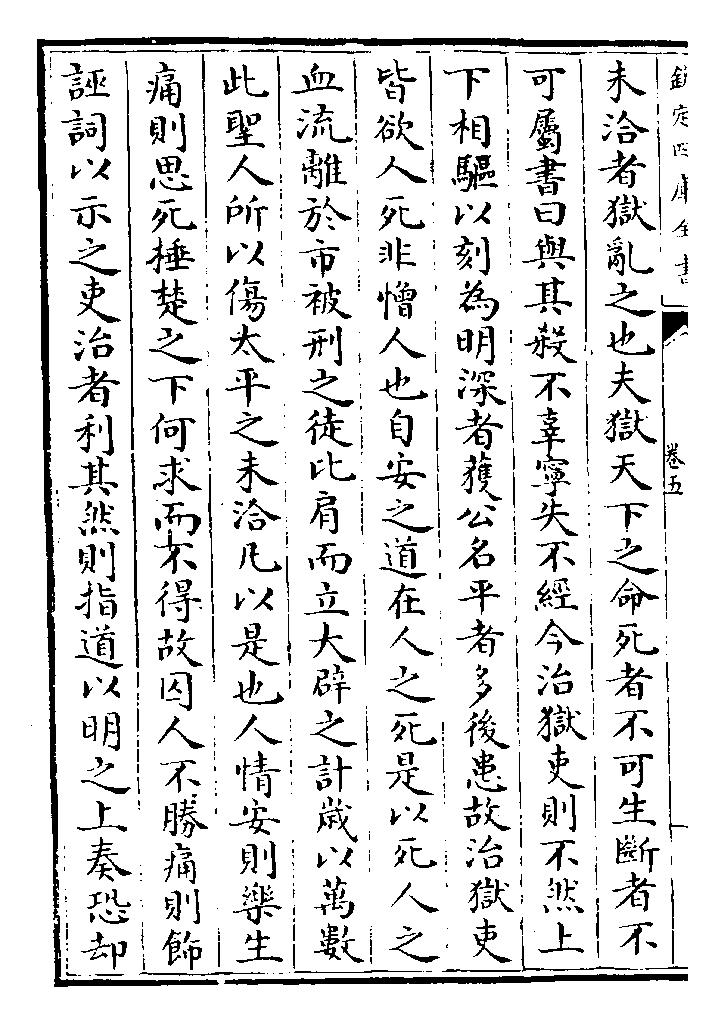 欽定四庫全書
卷五
未洽者獄亂之也夫獄天下之命死者不可生斷者不
可屬書曰與其殺不辜寧失不經今治獄吏則不然上
下相驅以刻為明深者獲公名平者多後患故治獄吏
皆欲人死非憎人也自安之道在人之死是以死人之
血流離於市被刑之徒比肩而立大辟之計歲以萬數
此聖人所以傷太平之未洽凡以是也人情安則樂生
痛則思死捶楚之下何求而不得故囚人不勝痛則飾
誣詞以示之吏治者利其然則指道以明之上奏恐却